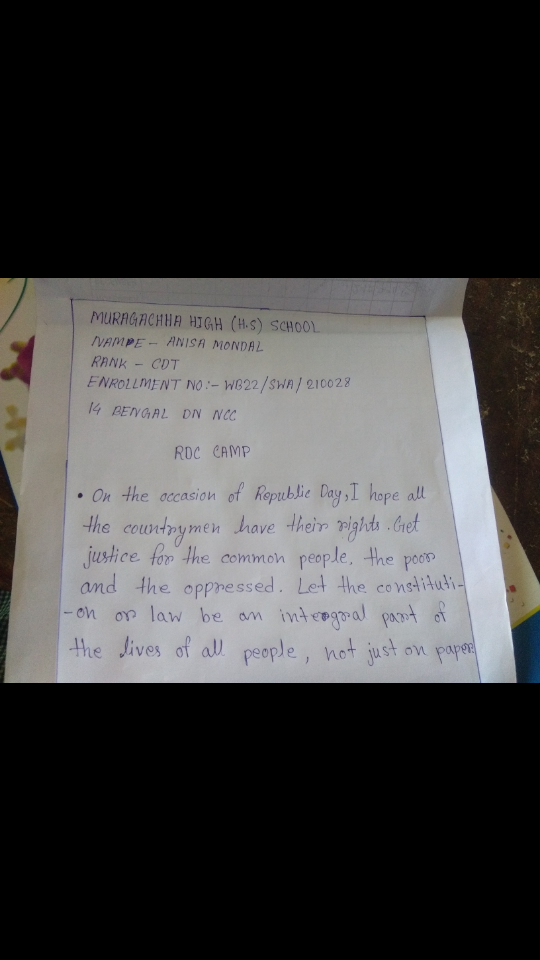 MURAGACHHA HIGH (H.S) SCHOOL
NAME - ANISA MONDAL
RANK - CDT
ENROLLMENT NO:- WB22/SWA/210028
14 BENGAL BN NCC
RDC CAMP
• On the occasion of Republic Day, I hope all
the countrymen have their rights. Get
justice for the common people, the poor
and the oppressed. Let the constituti-
-on or law be an intergral part of
the lives of all people, not just on paper.